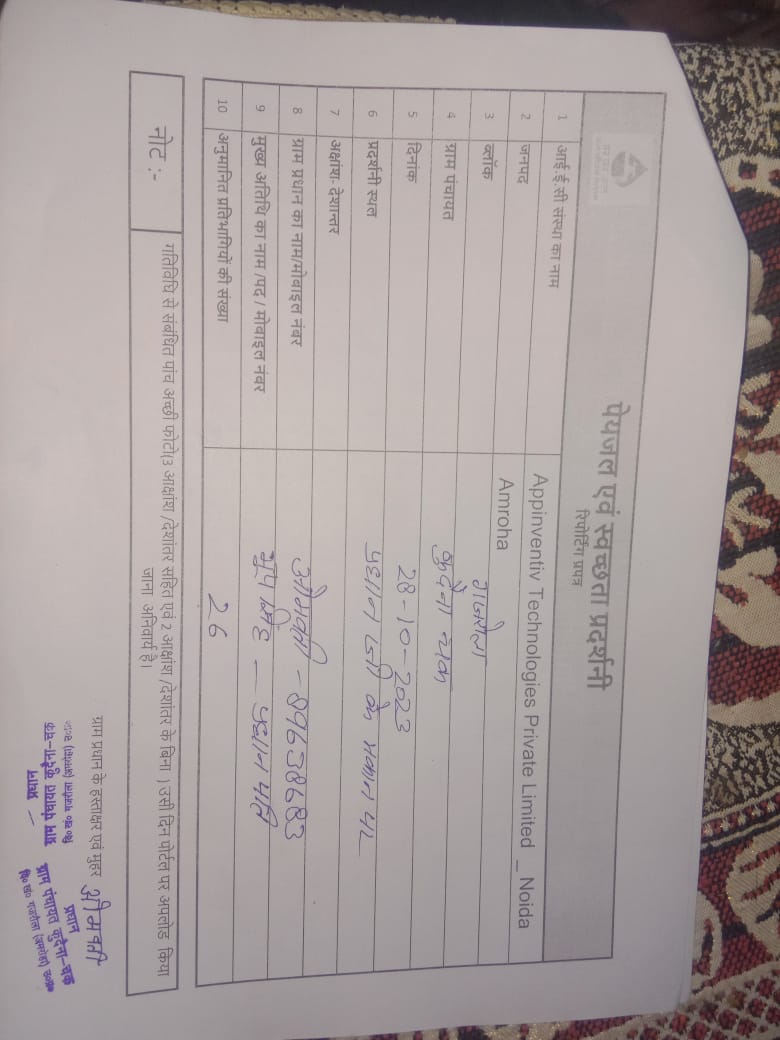 पेयजल एवं स्वच्छता प्रदर्शनी
रिपोर्टिंग प्रपत्र
1 आई.ई.सी संस्था का नाम Appinventiv Technologies Private Limited _ Noida
2 जनपद Amroha
3 ब्लॉक गजरौला
4 ग्राम पंचायत कुदैना चक
5 दिनांक 28-10-2023
6 प्रदर्शनी स्थल प्रधान जी के मकान पर
7 अक्षांश- देशान्तर
8 ग्राम प्रधान का नाम/मोबाइल नंबर ओमवती -
9 मुख्य अतिथि का नाम /पद / मोबाइल नंबर भूप सिंह - प्रधान पति
10 अनुमानित प्रतिभागियों की संख्या 26
नोट :- गतिविधि से संबंधित पांच अच्छी फोटो(3 आक्षांश /देशांतर सहित एवं 2 आक्षांश /देशांतर के बिना ) उसी दिन पोर्टल पर अपलोड किया
जाना अनिवार्य है।
ग्राम प्रधान के हस्ताक्षर एवं मुहर ओमवती
प्रधान
ग्राम पंचायत कुदैना-चक
वि० खं० गजरौला (अमरोहा) उ०प्र०
प्रधान
ग्राम पंचायत कुदैना-चक
वि० खं० गजरौला (अमरोहा) उ०प्र०